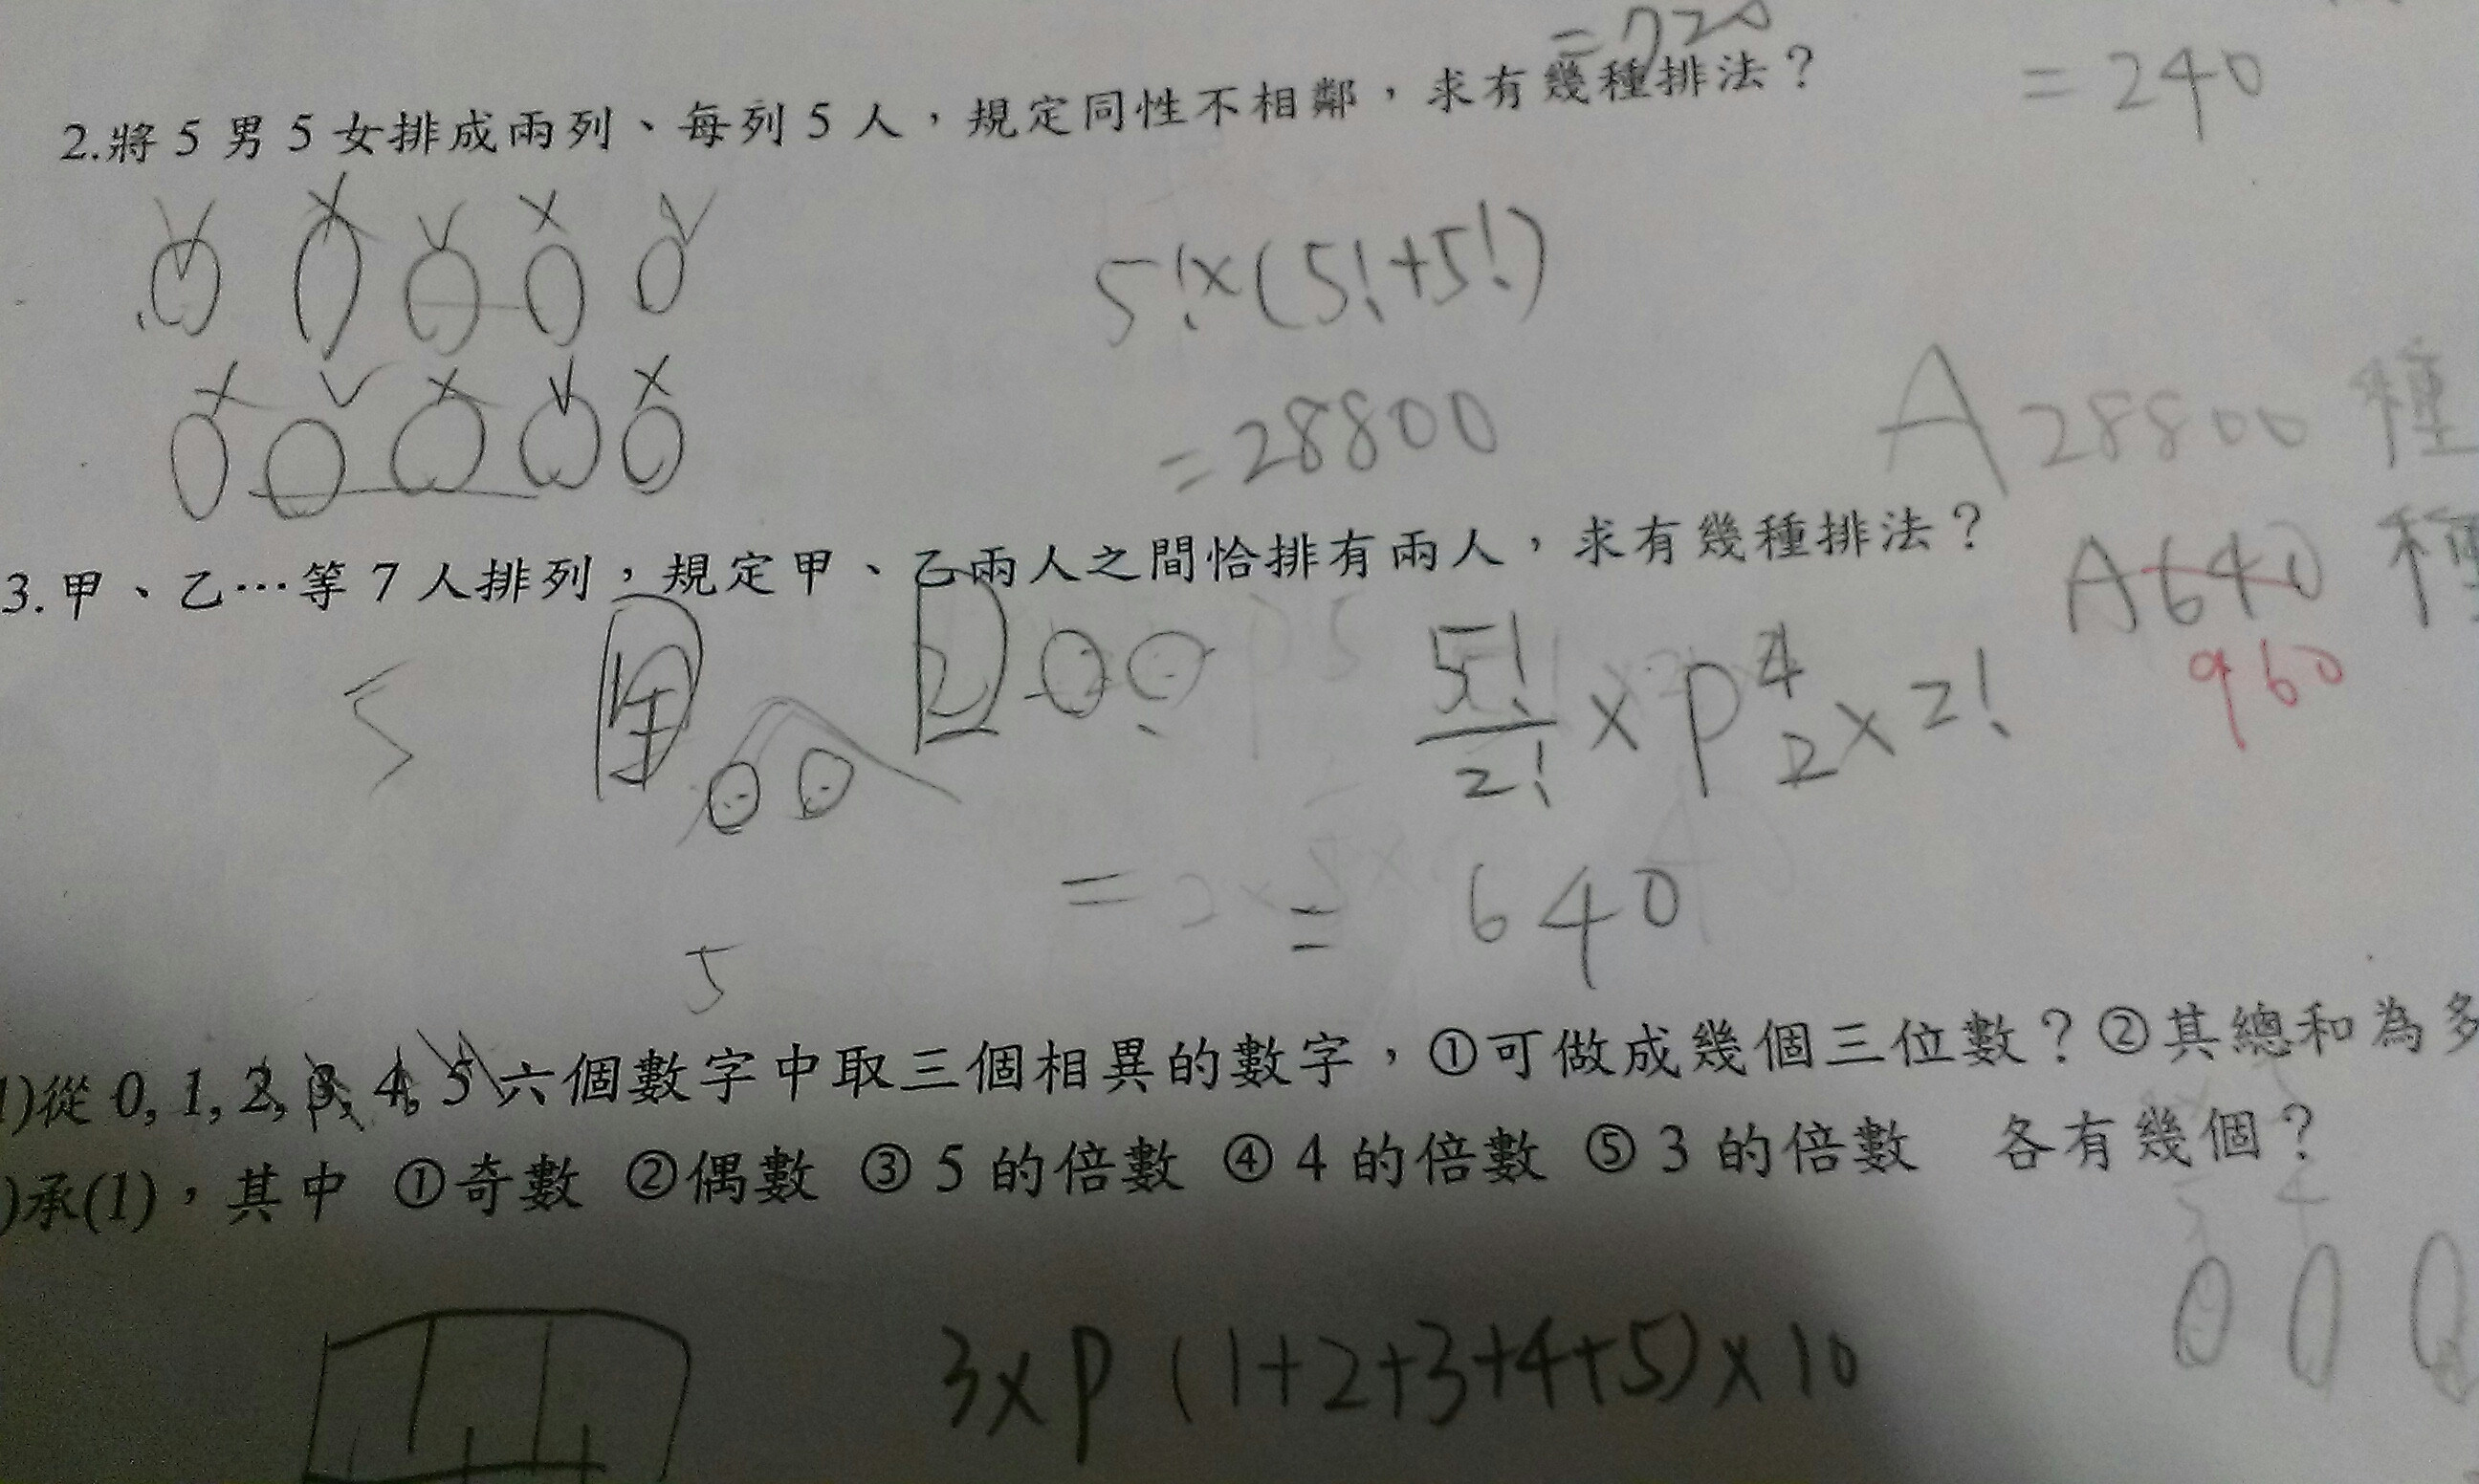 =720
=240
2.將 5 男 5 女排成兩列、每列 5 人,規定同性不相鄰,求有幾種排法?
5!×(5!+5!)
=28800
A 28800 種
3.甲、乙…等 7 人排列,規定甲、乙兩人之間恰排有兩人,求有幾種排法?
A 640 種
960
5 甲 乙
5!/2! × P⁴₂ × 2!
= = 640
5
1)從 0, 1, 2, 3, 4, 5 六個數字中取三個相異的數字,①可做成幾個三位數?②其總和為多
)承(1),其中 ①奇數 ②偶數 ③ 5 的倍數 ④ 4 的倍數 ⑤ 3 的倍數 各有幾個?
5 4
0 0 0
3×P (1+2+3+4+5)×10